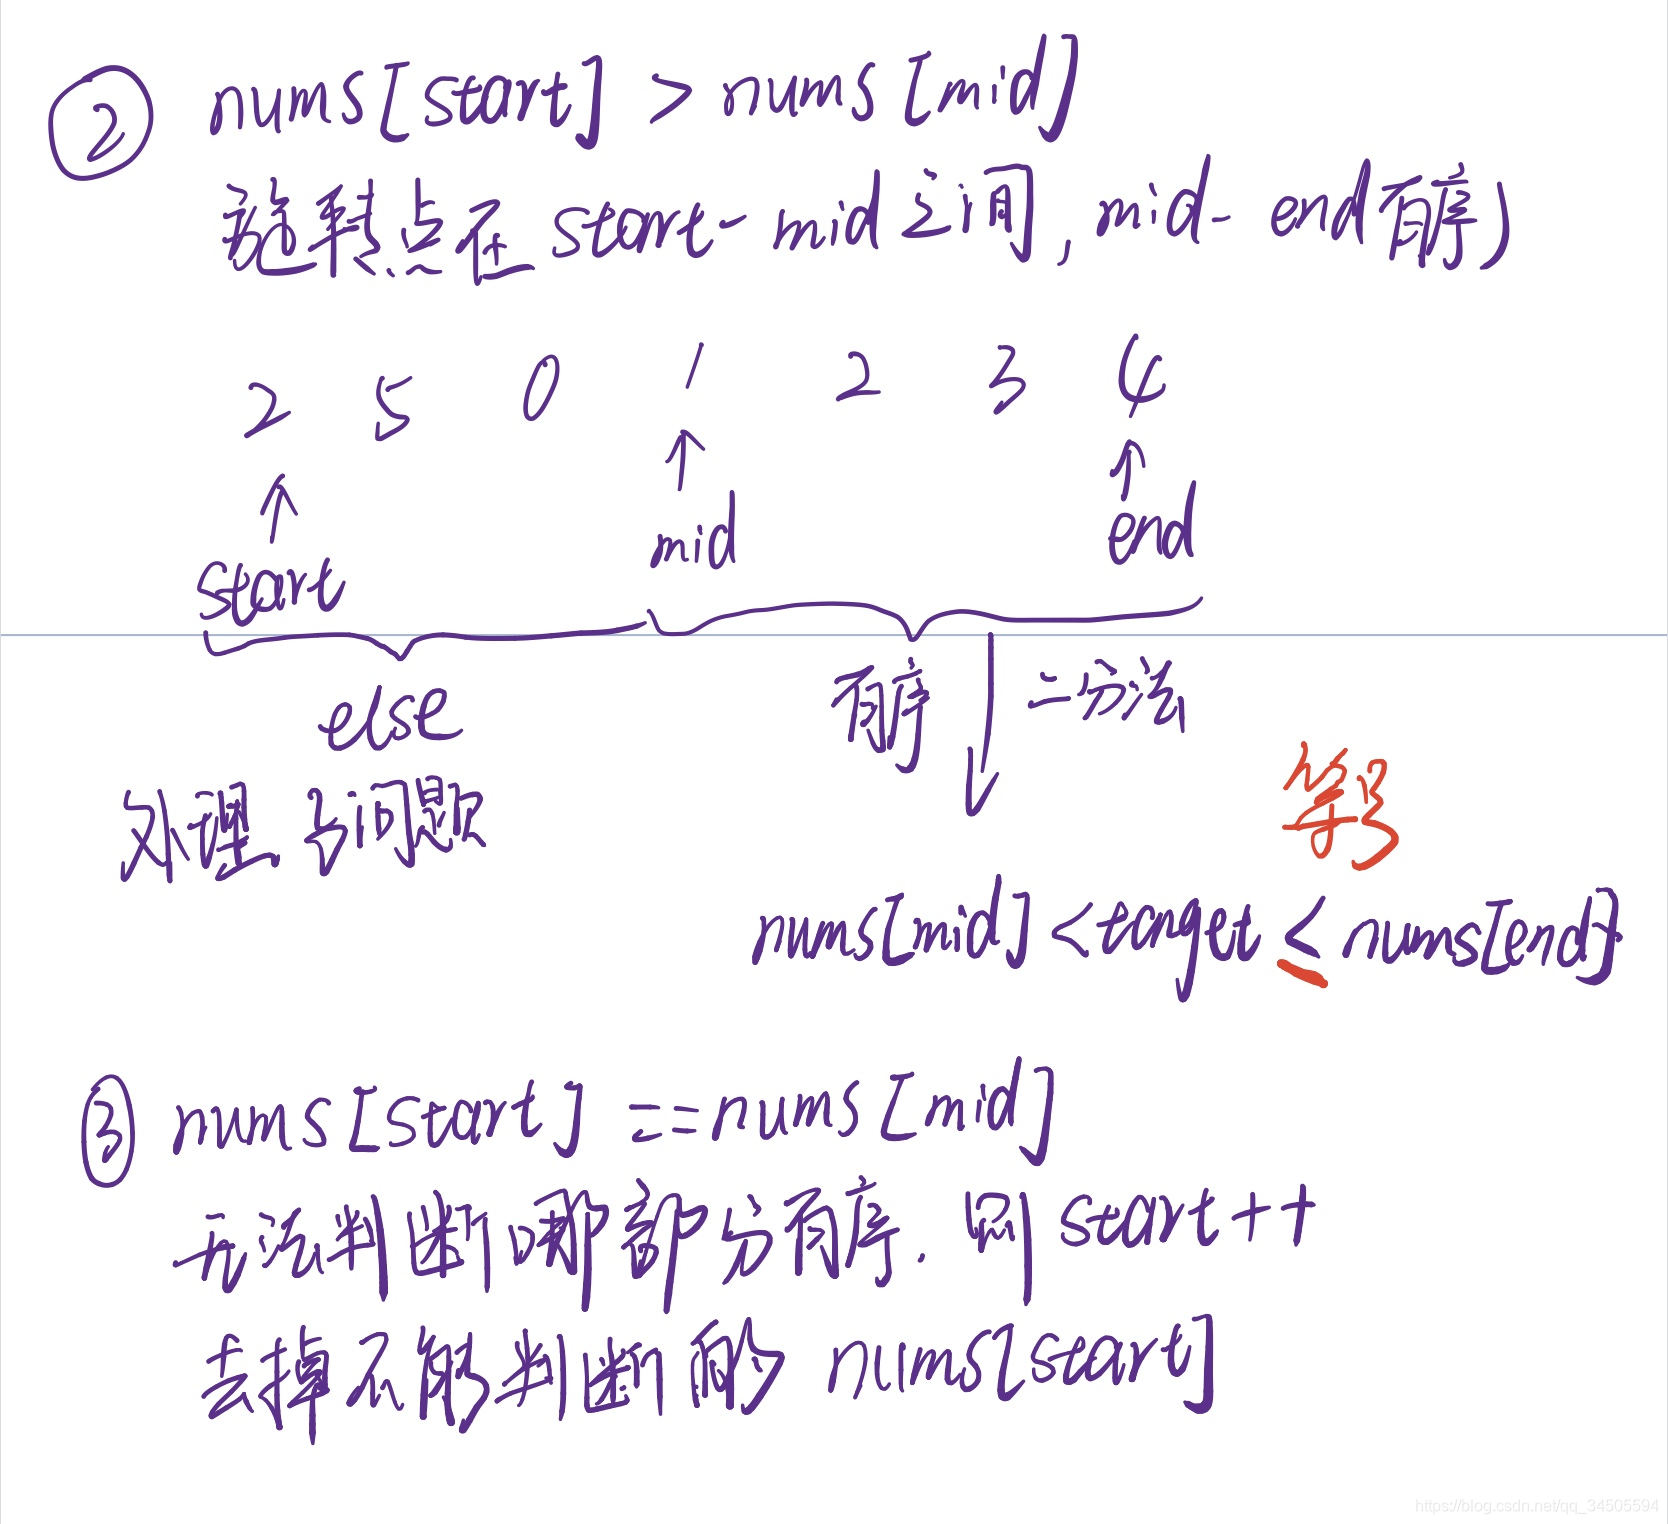 ② nums[start] > nums[mid]
旋转点在 start-mid之间, mid- end有序)
2 5 0 1 2 3 4
start mid end
else 有序 二分法
处理 子问题
等号
nums[mid] < target ≤ nums[end]
③ nums[start] == nums[mid]
无法判断哪部分有序. 则 start++
去掉不能判断的 nums[start]
https://blog.csdn.net/qq_34505594